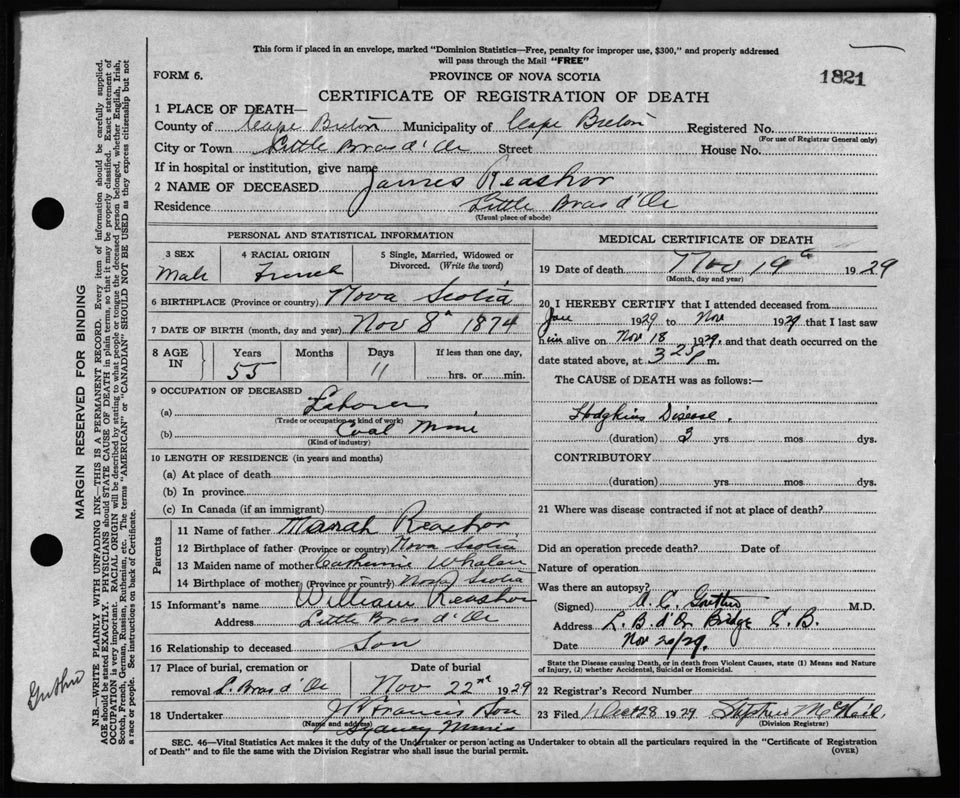 This form if placed in an envelope, marked "Dominion Statistics—Free, penalty for improper use, $300," and properly addressed
will pass through the Mail "FREE"
FORM 6.
PROVINCE OF NOVA SCOTIA
1821
CERTIFICATE OF REGISTRATION OF DEATH
1 PLACE OF DEATH—
County of Cape Breton Municipality of Cape Breton Registered No.
(For use of Registrar General only)
City or Town Little Bras d'Or Street House No.
If in hospital or institution, give name
2 NAME OF DECEASED James Reashor
Residence Little Bras d'Or
(Usual place of abode)
PERSONAL AND STATISTICAL INFORMATION
3 SEX 4 RACIAL ORIGIN 5 Single, Married, Widowed or
Divorced. (Write the word)
Male French
6 BIRTHPLACE (Province or country) Nova Scotia
7 DATE OF BIRTH (month, day and year) Nov 8th 1874
8 AGE IN Years Months Days If less than one day,
55 11 hrs. or min.
9 OCCUPATION OF DECEASED
(a) Laborer
(Trade or occupation or kind of work)
(b) Coal Mine
(Kind of industry)
10 LENGTH OF RESIDENCE (in years and months)
(a) At place of death
(b) In province
(c) In Canada (if an immigrant)
Parents
11 Name of father Reashor
12 Birthplace of father (Province or country) Nova Scotia
13 Maiden name of mother Catherine Whalen
14 Birthplace of mother (Province or country) Nova Scotia
15 Informant's name William Reashor
Address Little Bras d'Or
16 Relationship to deceased Son
17 Place of burial, cremation or Date of burial
removal L. Bras d'Or Nov 22nd 1929
18 Undertaker Francis Son
(Name and address)
Sydney Mines
MEDICAL CERTIFICATE OF DEATH
19 Date of death Nov 19th 1929
(Month, day and year)
20 I HEREBY CERTIFY that I attended deceased from
Jan 1929 to Nov 1929 that I last saw
him alive on Nov 18 1929, and that death occurred on the
date stated above, at 3 25 p m.
The CAUSE OF DEATH was as follows:—
Hodgkins Disease.
(duration) 3 yrs. mos. dys.
CONTRIBUTORY
(duration) yrs. mos. dys.
21 Where was disease contracted if not at place of death?
Did an operation precede death? Date of
Nature of operation
Was there an autopsy?
(Signed) A. C. M.D.
Address L. B. d'Or Bridge C. B.
Date Nov 20/29.
State the Disease causing Death, or in death from Violent Causes, state (1) Means and Nature
of Injury, (2) whether Accidental, Suicidal or Homicidal.
22 Registrar's Record Number
23 Filed 28 1929 Stephen McNeil.
(Division Registrar)
SEC. 46—Vital Statistics Act makes it the duty of the Undertaker or person acting as Undertaker to obtain all the particulars required in the "Certificate of Registration
of Death" and to file the same with the Division Registrar who shall issue the burial permit.
(OVER)
MARGIN RESERVED FOR BINDING
N.B.—WRITE PLAINLY WITH UNFADING INK—THIS IS A PERMANENT RECORD. Every item of information should be carefully supplied.
AGE should be stated EXACTLY. PHYSICIANS should STATE CAUSE OF DEATH in plain terms, so that it may be properly classified. Exact statement of
OCCUPATION is very important. RACIAL ORIGIN will be described by stating to what people or tongue the deceased person belonged, whether English, Irish,
Scotch, French, German, Russian, Ruthenian, etc. The terms "AMERICAN" or "CANADIAN" SHOULD NOT BE USED as they express citizenship but not
a race or people. See instructions on back of Certificate.